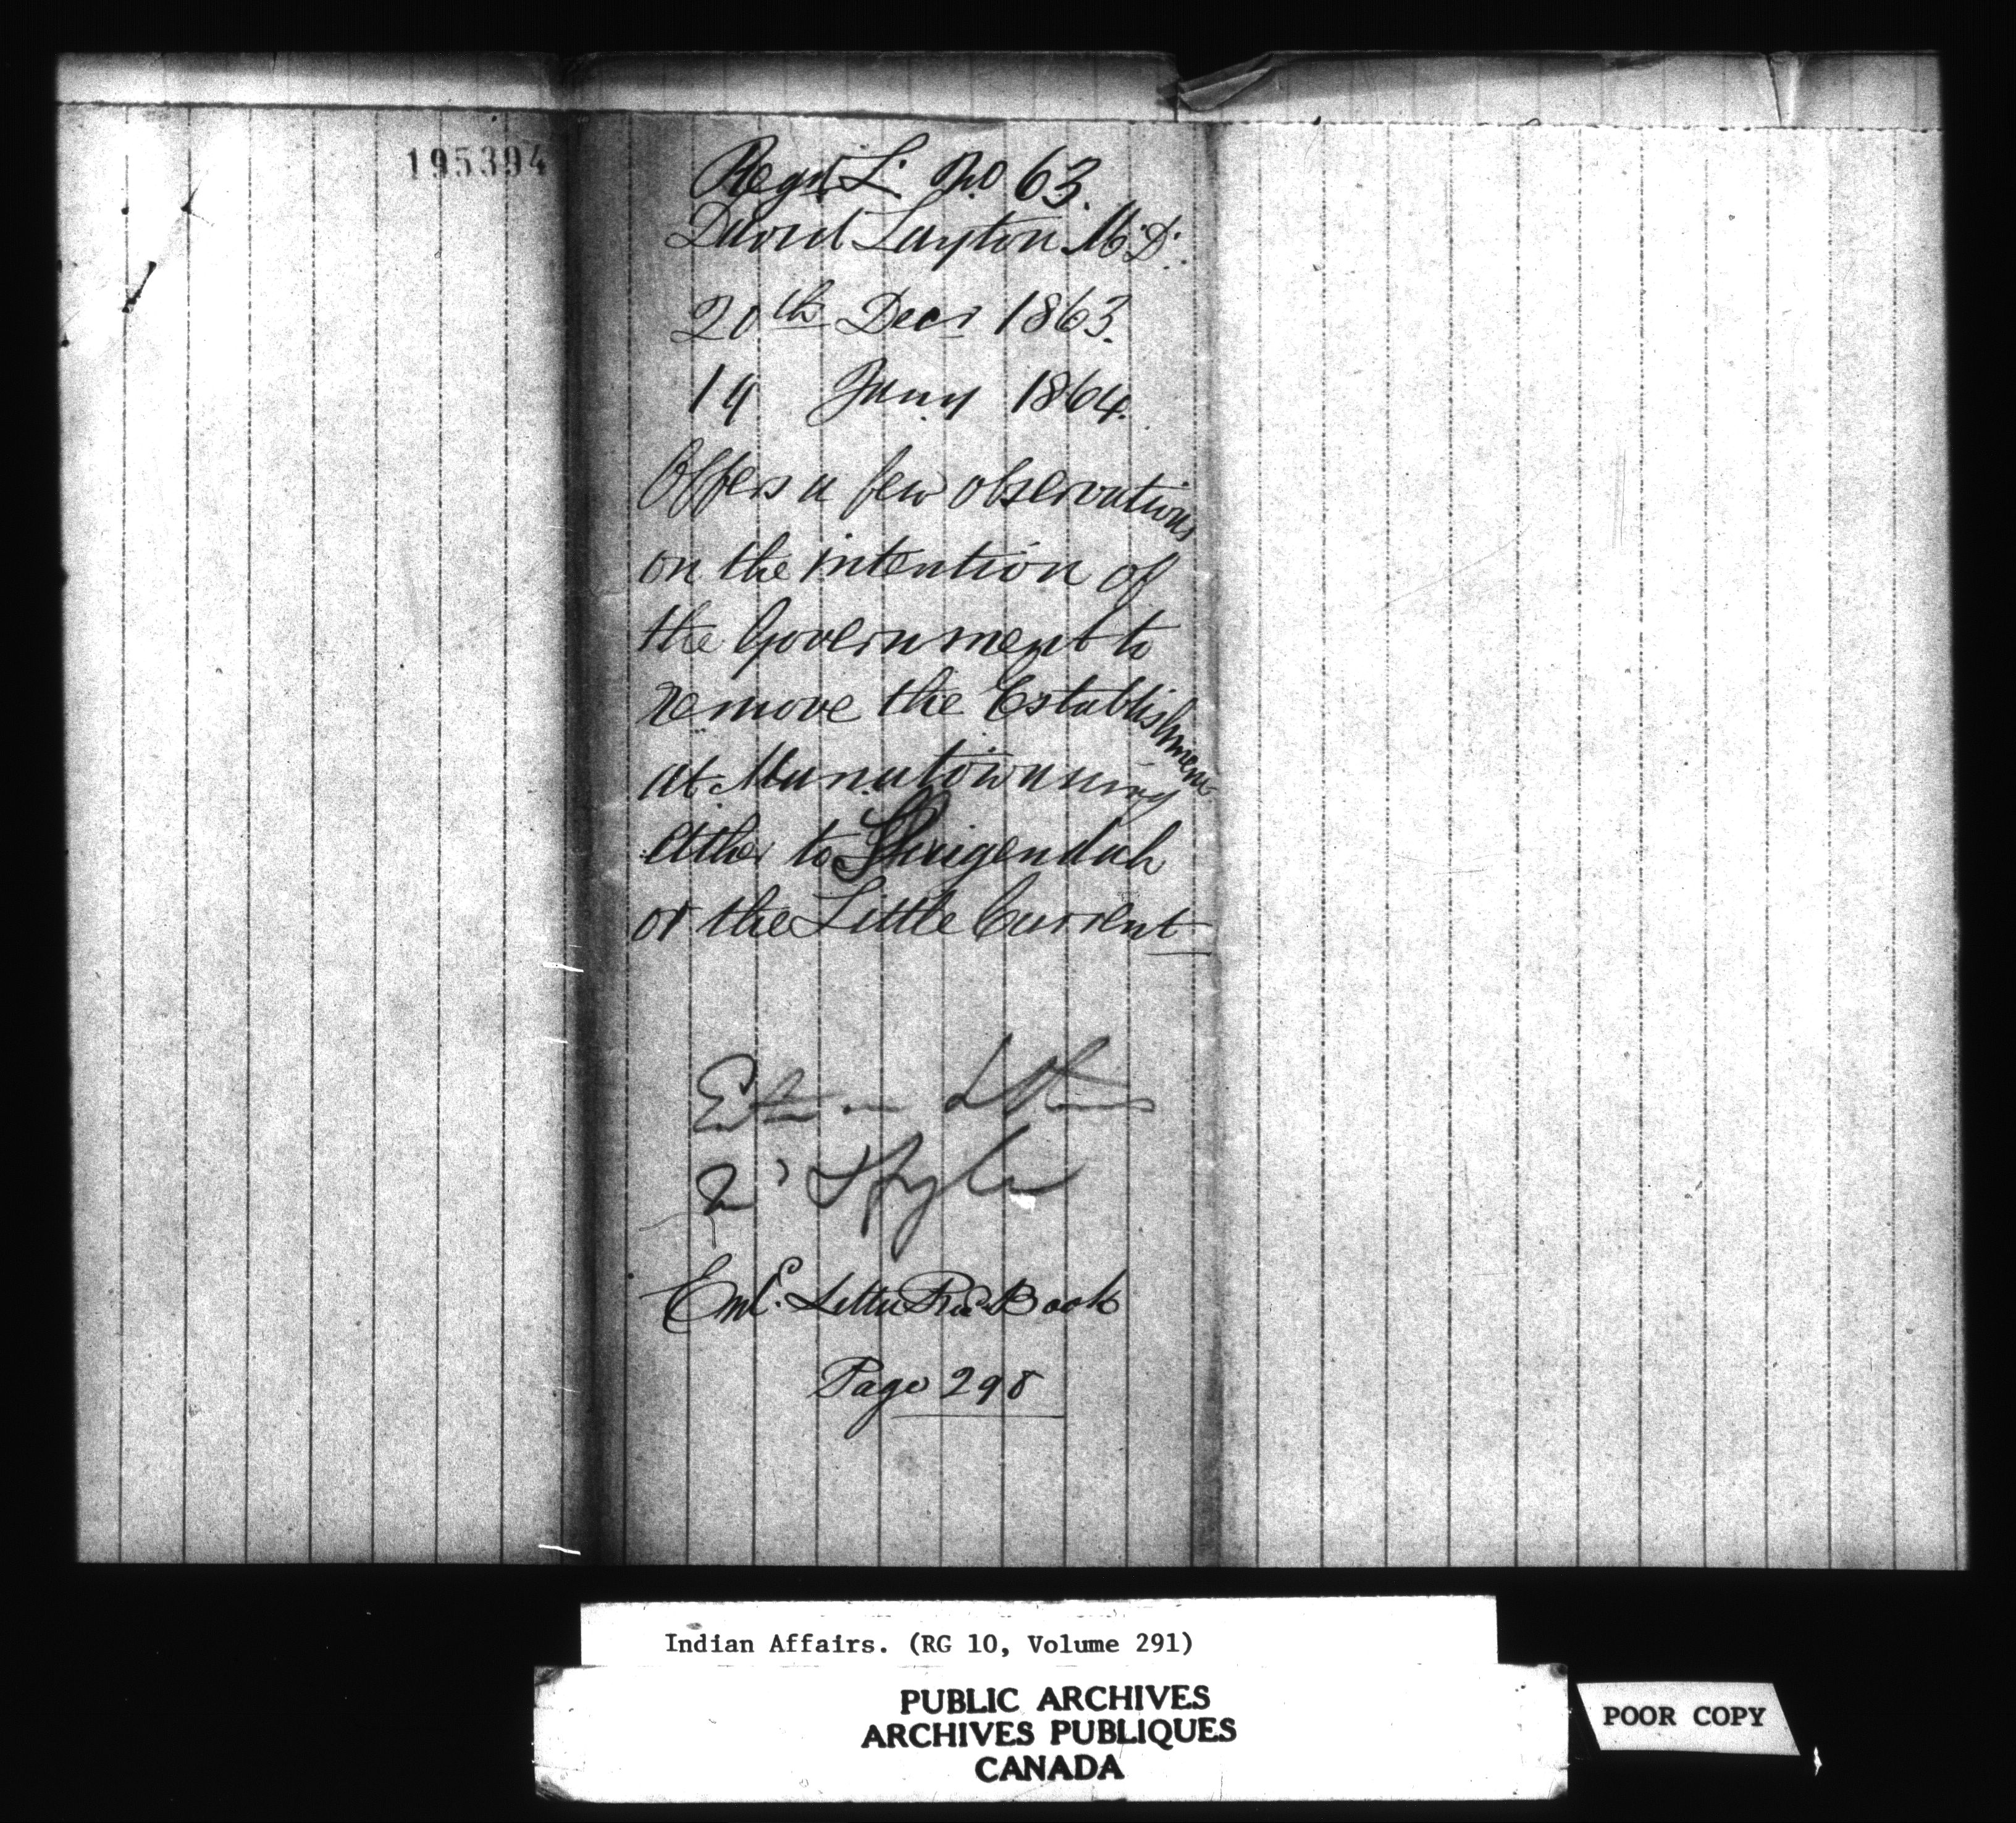 195394
Regd L. No 63.
David Layton M.D.
20th Decr 1863.
19 Jany 1864.
Offers a few observations
on the intention of
the Government to
remove the Establishment
at Manatowaning
either to
or the Little Current
Ent. Letter Book
Page 298
Indian Affairs. (RG 10, Volume 291)
PUBLIC ARCHIVES
ARCHIVES PUBLIQUES
CANADA
POOR COPY